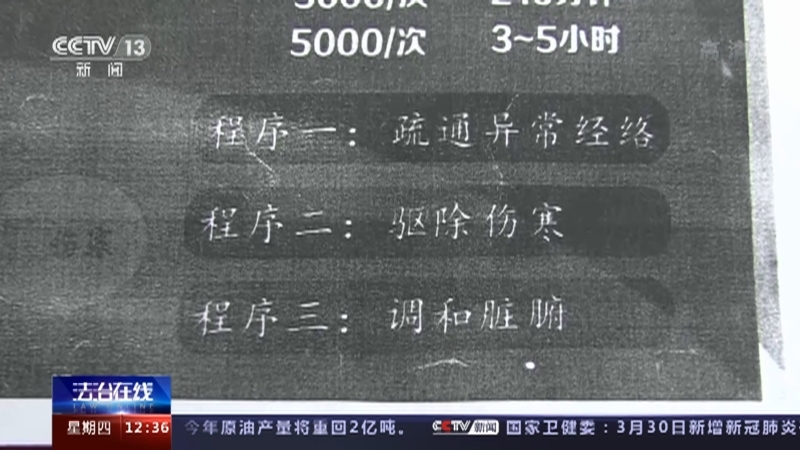 CCTV 13
新闻
5000/次 3~5小时
程序一：疏通异常经络
程序二：驱除伤寒
程序三：调和脏腑
法治在线
星期四 12:36 今年原油产量将重回2亿吨。 CCTV 新闻 国家卫健委：3月30日新增新冠肺炎